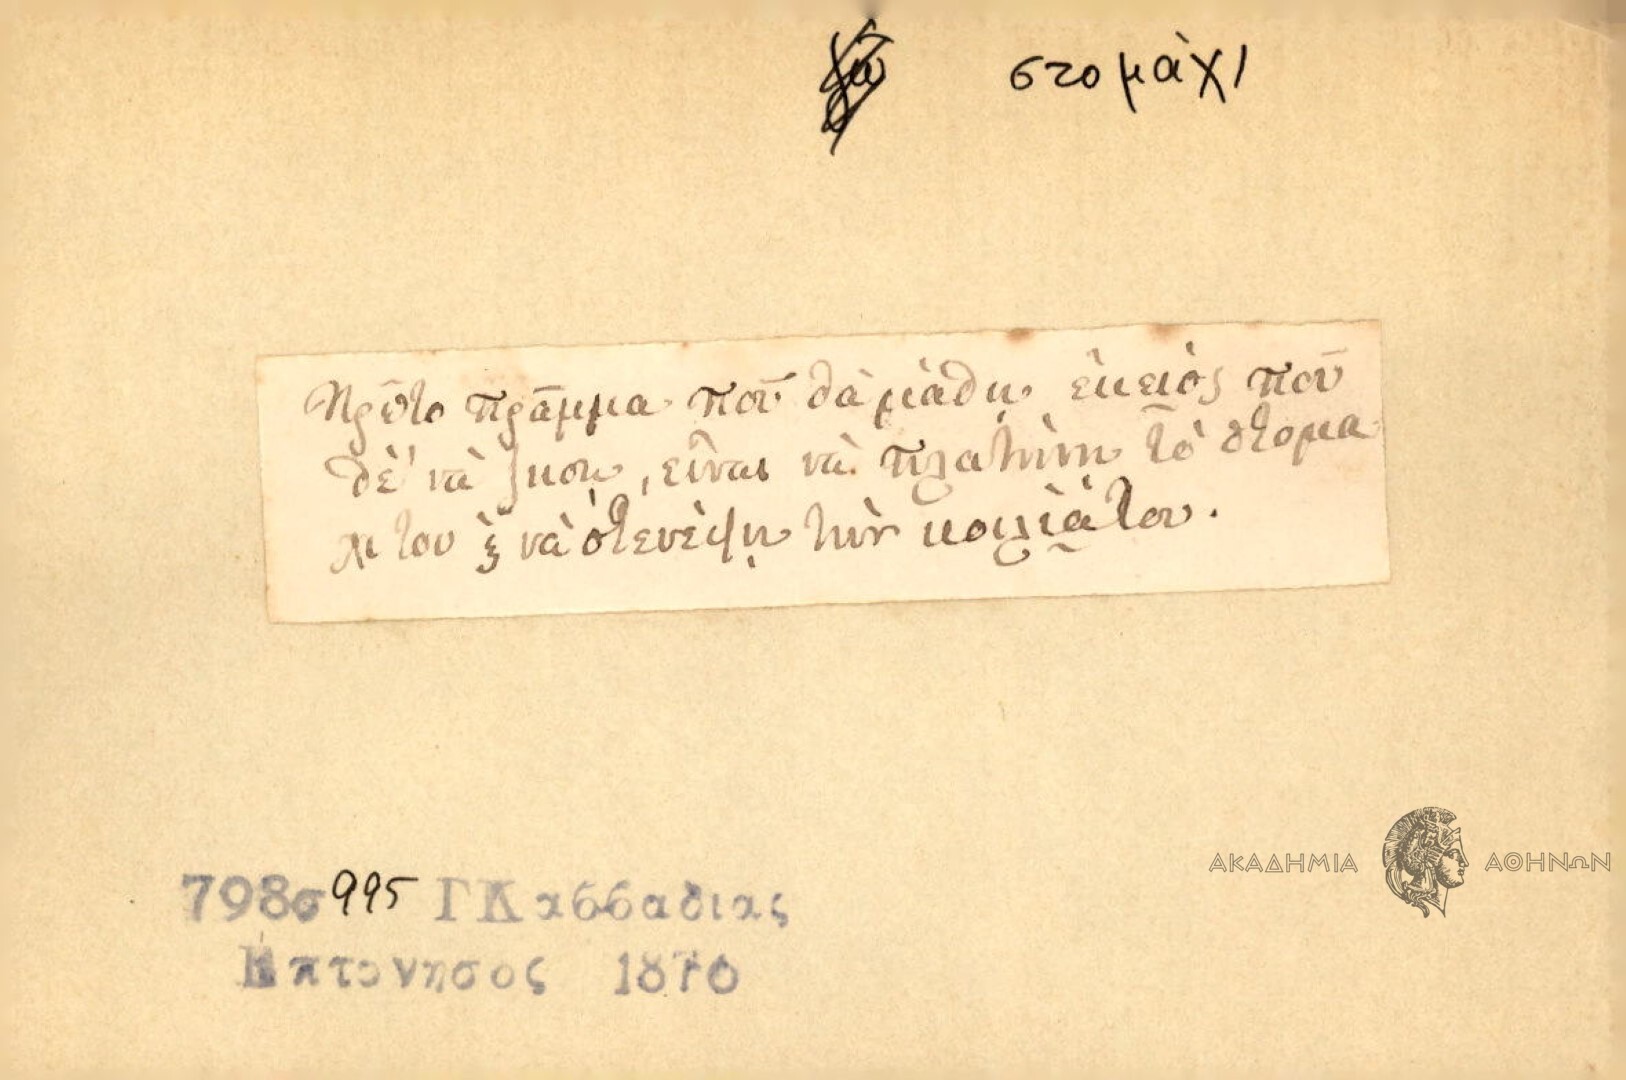 στομάχι
Πρῶτο πρᾶμμα ποῦ θὰ μάθῃ ἐκειὸς ποῦ
θὲ νὰ ζήσῃ, εἶναι νὰ πλατήνῃ τὸ στομα
χι του ὲ νὰ στενέψῃ τὴν κοιλιὰ του.
798σ 995 Γ Κασσαδιας
Επτονησος 1876
ΑΚΑΔΗΜΙΑ ΑΘΗΝΩΝ